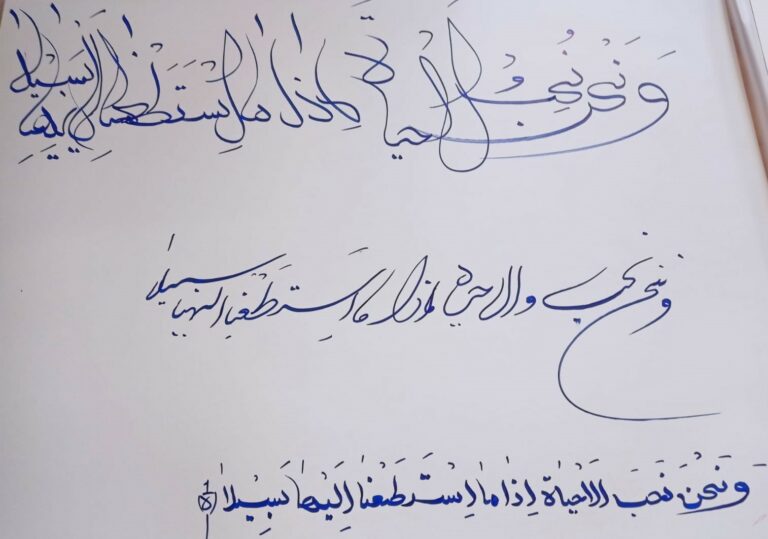 وَنَحْنُ نُحِبُّ الحَيَاةَ إِذَا مَا اسْتَطَعْنَا إِلَيْهَا سَبِيلَا
ونحن نحب الحياة إذا ما استَطَعْنا إليها سبيلا
وَنَحْنُ نُحِبُّ الْحَيَاةَ إِذَا مَا اِسْتَطَعْنَا إِلَيْهَا سَبِيْلَا